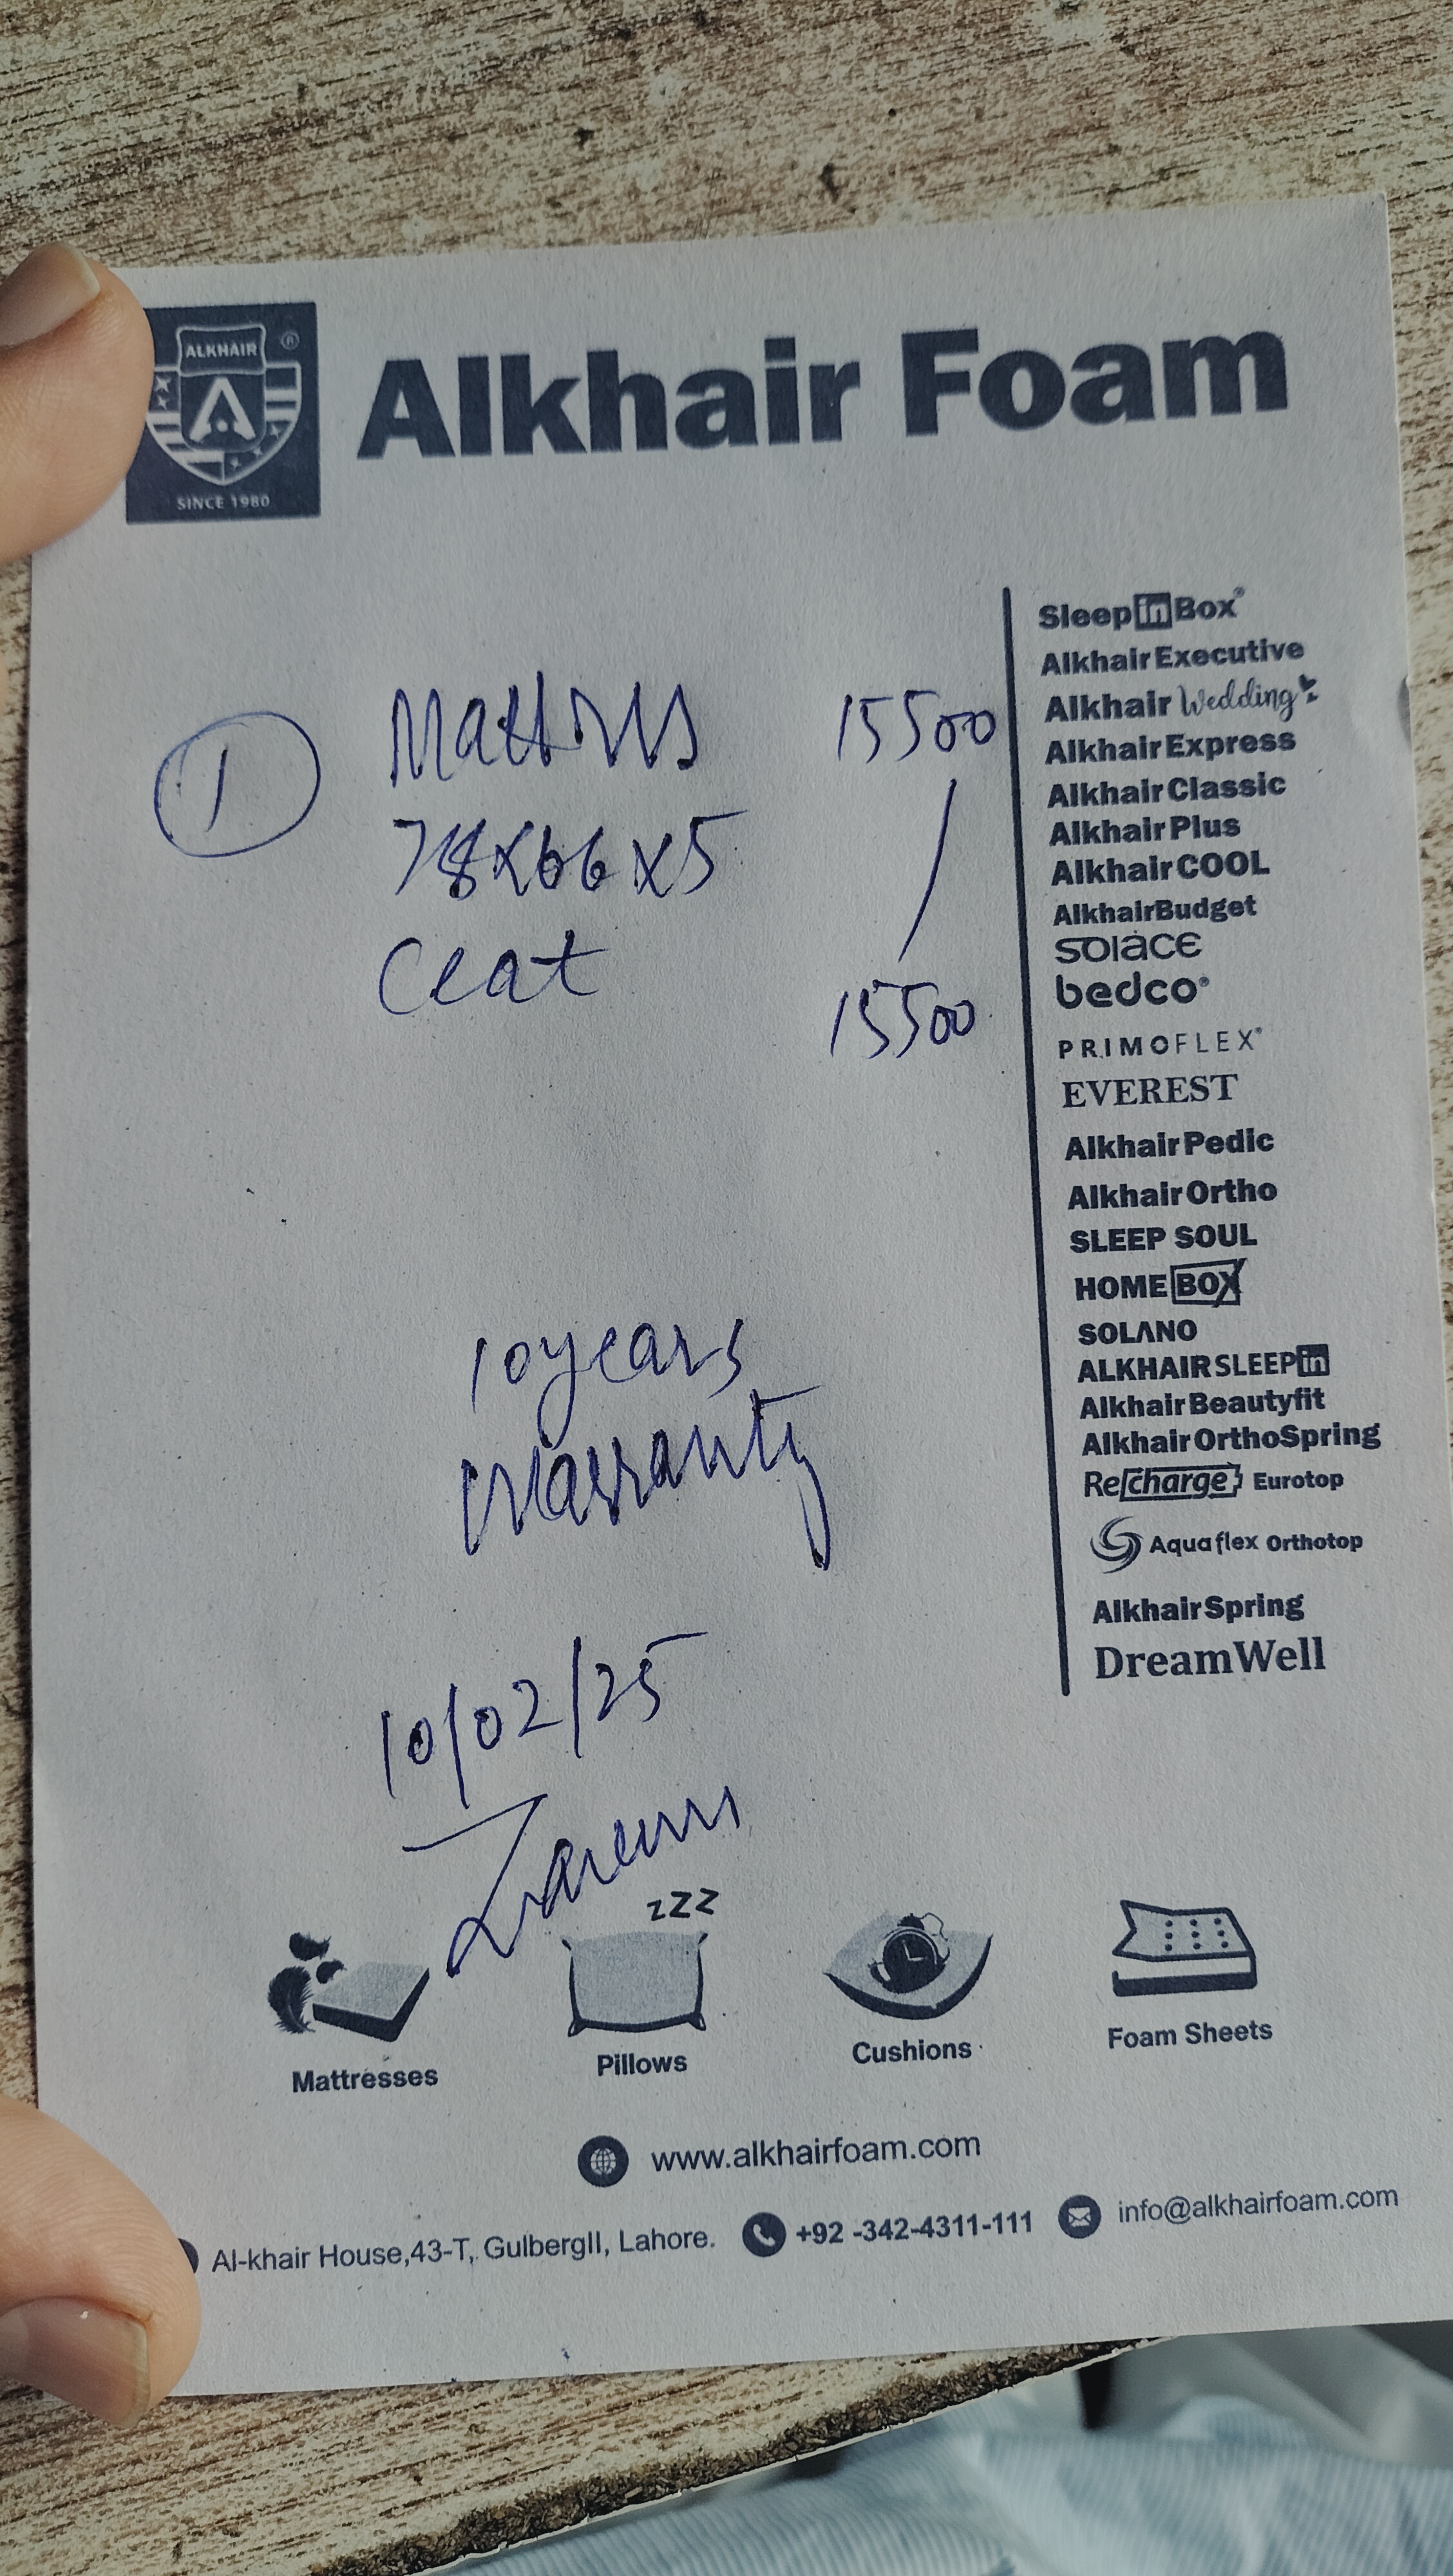 ALKHAIR ®
SINCE 1980
Alkhair Foam
SleepinBox®
Alkhair Executive
Alkhair Wedding
Alkhair Express
Alkhair Classic
Alkhair Plus
Alkhair COOL
AlkhairBudget
SOLACE
bedco®
PRIMOFLEX®
EVEREST
Alkhair Pedic
Alkhair Ortho
SLEEP SOUL
HOME BOX
SOLANO
ALKHAIR SLEEPin
Alkhair Beautyfit
Alkhair OrthoSpring
Recharge Eurotop
Aquaflex Orthotop
Alkhair Spring
DreamWell
1 Mattress 15500
78x66x5
Ceat
15500
10 years
warranty
10/02/25
zzz
Mattresses Pillows Cushions Foam Sheets
www.alkhairfoam.com
Al-khair House,43-T, GulbergII, Lahore. +92 -342-4311-111 info@alkhairfoam.com